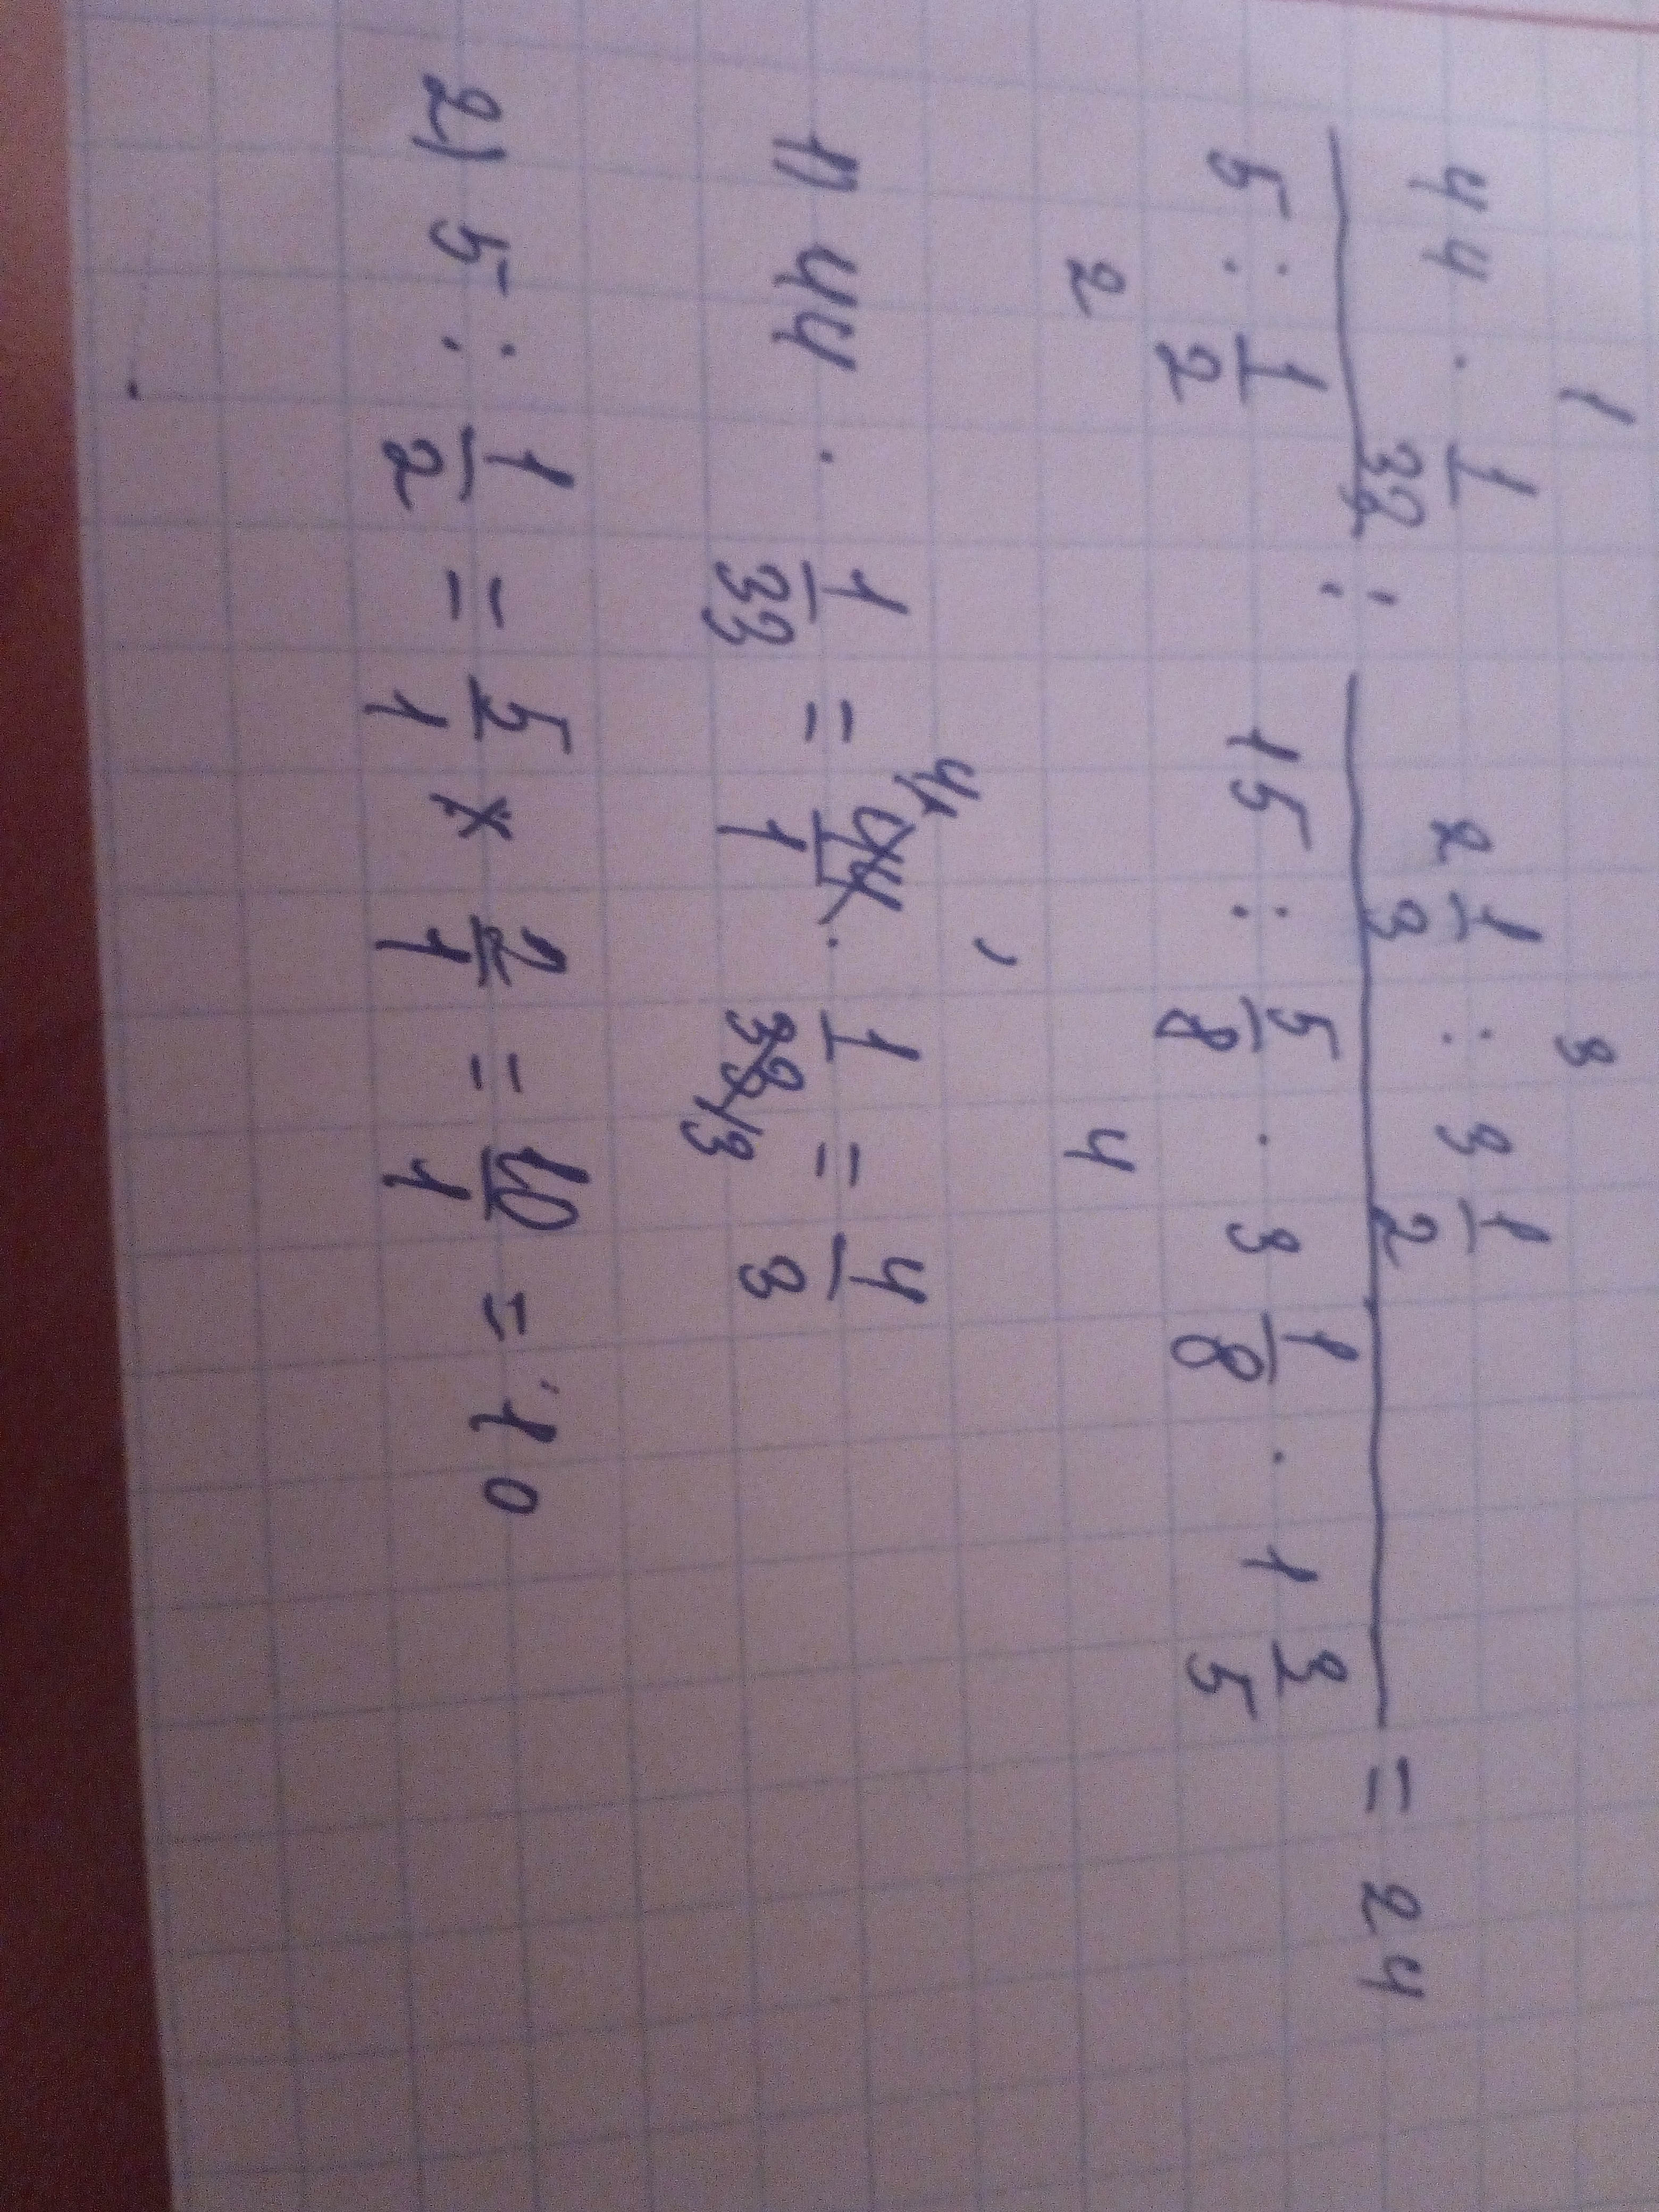 1 3
44 · 1/33 : 2 1/3 : 3 1/2
5 : 1/2 15 : 5/8 · 3 1/8 · 1 3/5 = 24
2 4
1) 44 · 1/33 = 44/1 · 1/33 = 4/3
2) 5 : 1/2 = 5/1 × 2/1 = 10/1 = 10